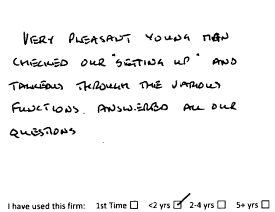 VERY PLEASANT YOUNG MAN
CHECKED OUR "SETTING UP" AND
TALKED US THROUGH THE VARIOUS
FUNCTIONS. ANSWERED ALL OUR
QUESTIONS
I have used this firm: 1st Time ☐ <2 yrs ☑ 2-4 yrs ☐ 5+ yrs ☐